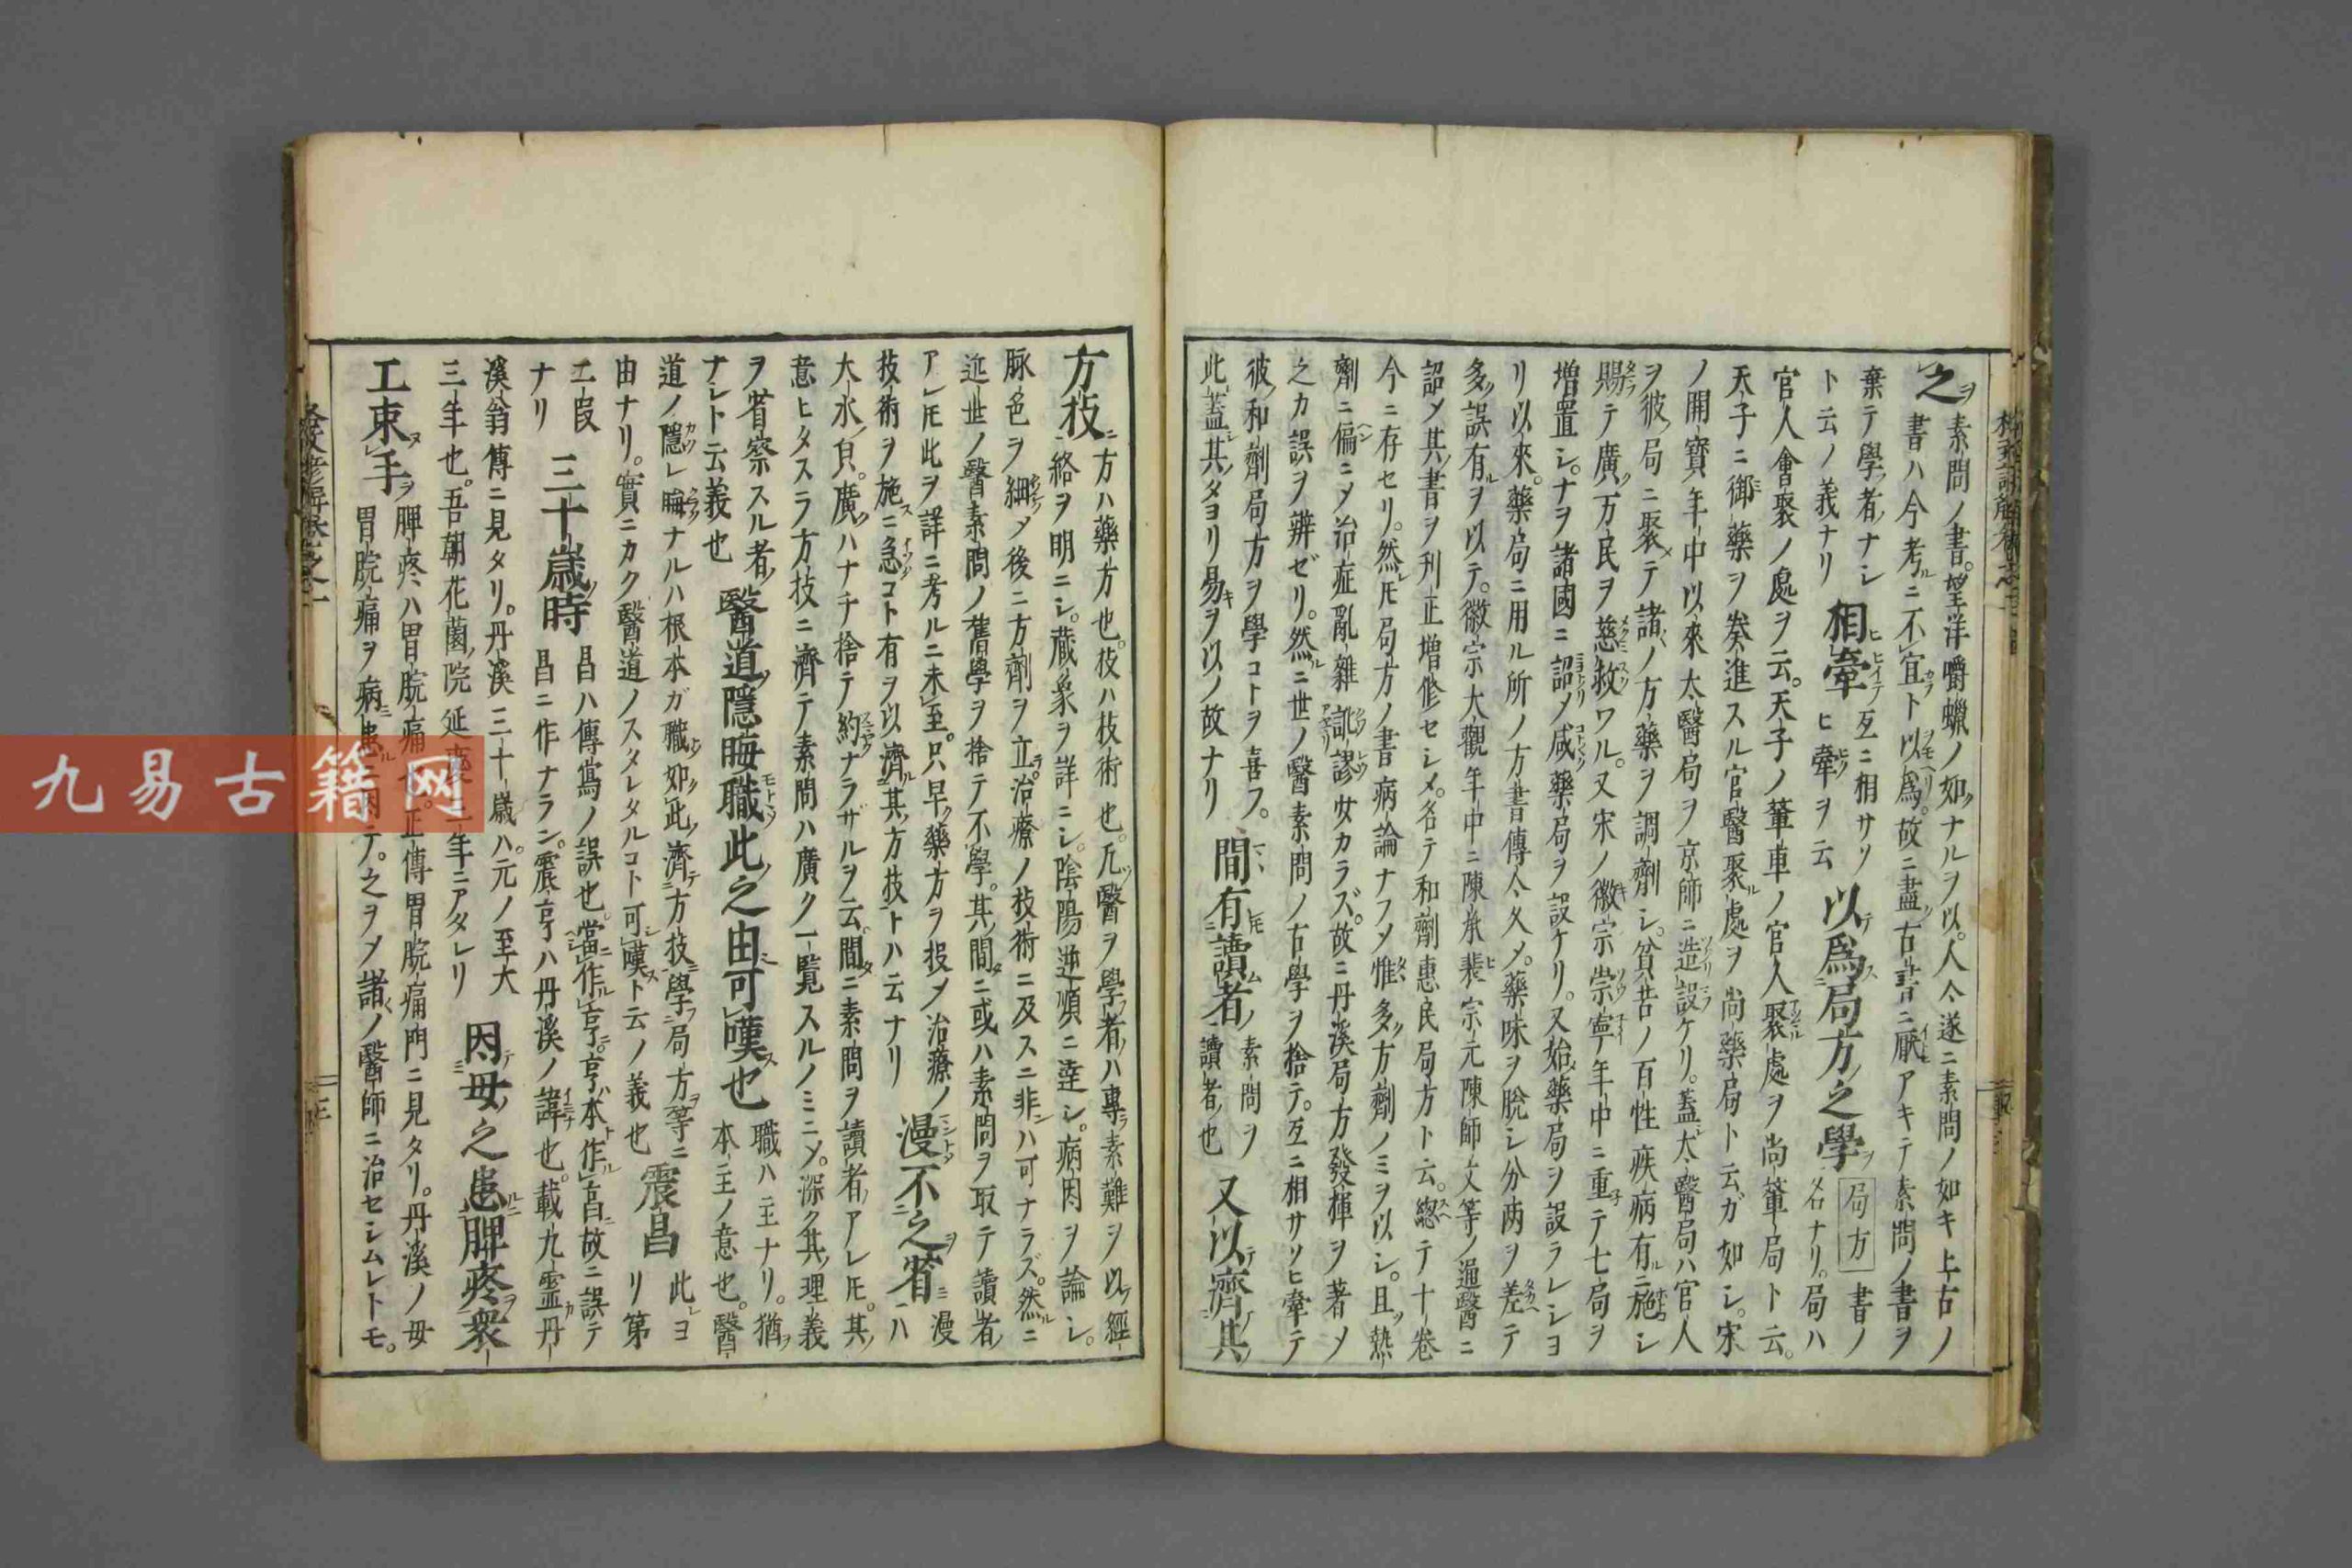 之 素問ノ書。望洋嚼蠟ノ如ナルヲ以。人今遂ニ素問ノ如キ上古ノ
書ハ今考ニ不宜ト以爲。故ニ盡古書ニ厭アキテ素問ノ書ヲ
棄テ學者ナシ 相牽 ヒイテ互ニ相サソ 以爲局方之學 局方 書ノ
ト云ノ義ナリ ヒ牽ヲ云 名ナリ。局ハ
官人會聚ノ處ヲ云。天子ノ輦車ノ官人聚處ヲ尚輦局ト云。
天子ニ御藥ヲ奏進スル官醫聚處ヲ尚藥局ト云ガ如シ。宋
ノ開寶年中以來太醫局ヲ京師ニ造設ケリ。蓋太醫局ハ官人
ヲ彼局ニ聚テ諸ノ方藥ヲ調劑シ。貧苦ノ百性疾病有ニ施シ
賜テ廣万民ヲ慈救ワル。又宋ノ徽宗崇寧年中ニ重テ七局ヲ
增置シ。ナヲ諸國ニ詔メ咸藥局ヲ設ケリ。又始藥局ヲ設ラレシヨ
リ以來。藥局ニ用ル所ノ方書傳今久メ。藥味ヲ脫シ分兩ヲ差テ
多誤有ヲ以テ。徽宗大觀年中ニ陳承裴宗元陳師文等ノ通醫ニ
詔メ其書ヲ刊正增修セシメ。名テ和劑惠民局方ト云。總テ十卷
今ニ存セリ。然圧局方ノ書病論ナフメ惟多方劑ノミヲ以シ。且熱
劑ニ偏ニメ治症亂雜訛謬少カラズ。故ニ丹溪局方發揮ヲ著メ
之カ誤ヲ辨ゼリ。然ニ世ノ醫素問ノ古學ヲ捨テ。互ニ相サソヒ牽テ
彼和劑局方ヲ學コトヲ喜フ。 間有讀者 素問ヲ 又以濟其
此蓋其タヨリ易ヲ以ノ故ナリ 讀者也
方技 方ハ藥方也。技ハ技術也。凡醫ヲ學者ハ專素難ヲ以經
絡ヲ明ニシ。藏象ヲ詳ニシ。陰陽逆順ニ達シ。病因ヲ論シ。
脉色ヲ細メ後ニ方劑ヲ立。治療ノ技術ニ及スニ非ハ可ナラズ。然ニ
近世ノ醫素問ノ舊學ヲ捨テ不學。其間ニ或ハ素問ヲ取テ讀者
アレ圧此ヲ詳ニ考ルニ未至。只早藥方ヲ投メ治療ノ 漫不之省 漫
技術ヲ施ニ急コト有ヲ以濟其方技トハ云ナリ ハ
大水貝。廣ハナチ捨テ約ナラザルヲ云。間ニ素問ヲ讀者アレ圧。其
意ヒタスラ方技ニ濟テ素問ハ廣ク一覽スルノミニメ。深ク其理義
ヲ省察スル者 醫道隱晦職此之由可嘆也 職ハ主ナリ。猶
ナレト云義也 本主ノ意也。醫
道ノ隱レ晦ナルハ根本ガ職如此濟方技學局方等ニ 震昌 此ヨ
由ナリ。實ニカク醫道ノスタレタルコト可嘆ト云ノ義也 リ第
二段 三十歲時 昌ハ傳寫ノ誤也。當作亨。亨本作亯故ニ誤テ
ナリ 昌ニ作ナラン。震亨ハ丹溪ノ諱也。載九靈丹
溪翁傳ニ見タリ。丹溪三十歲ハ。元ノ至大 因母之患脾疼衆
三年也。吾朝花園院延慶三年ニアタレリ
工束手 脾疼ハ胃脘痛也。正傳胃脘痛門ニ見タリ。丹溪ノ母
胃脘痛ヲ病患 因テ。之ヲメ諸ノ醫師ニ治セシムレトモ。
九易古籍网